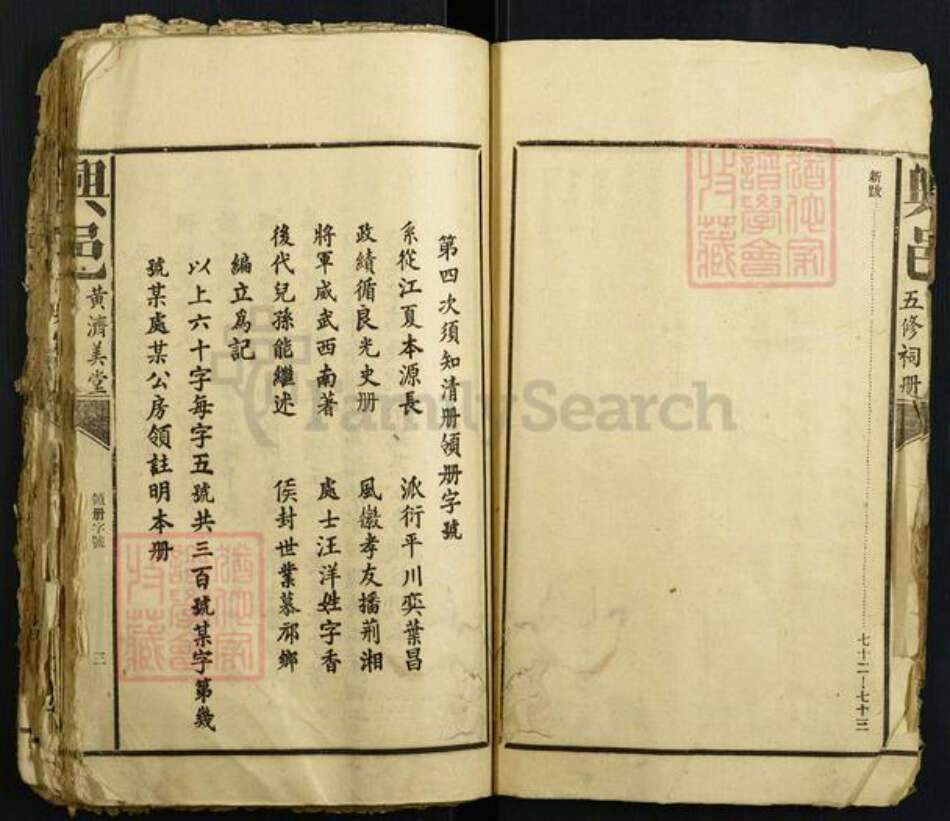 興邑
五修祠册
新跋……七十二—七十三
第四次須知清册領册字號
系從江夏本源長 派衍平川奕葉昌
政績循良光史册 風徽孝友播荊湘
將軍威武西南著 處士汪洋姓字香
後代兒孫能繼述 侯封世業慕邠鄉
編立爲記
以上六十字每字五號共三百號某字第幾
號某處某公房領註明本册
興邑
黃濟美堂
領册字號
三
FamilySearch